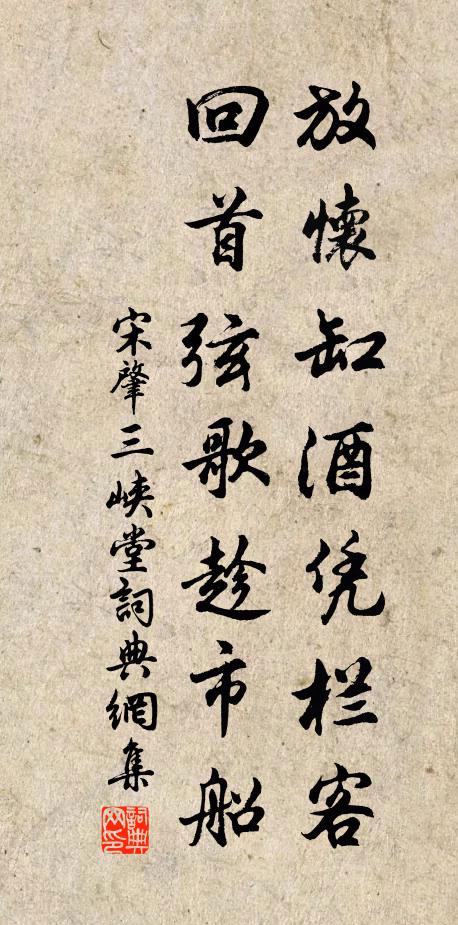 放懷缸酒凭栏客
回首弦歌趁市船
宋肇三峡堂詞典網集
詞典网印